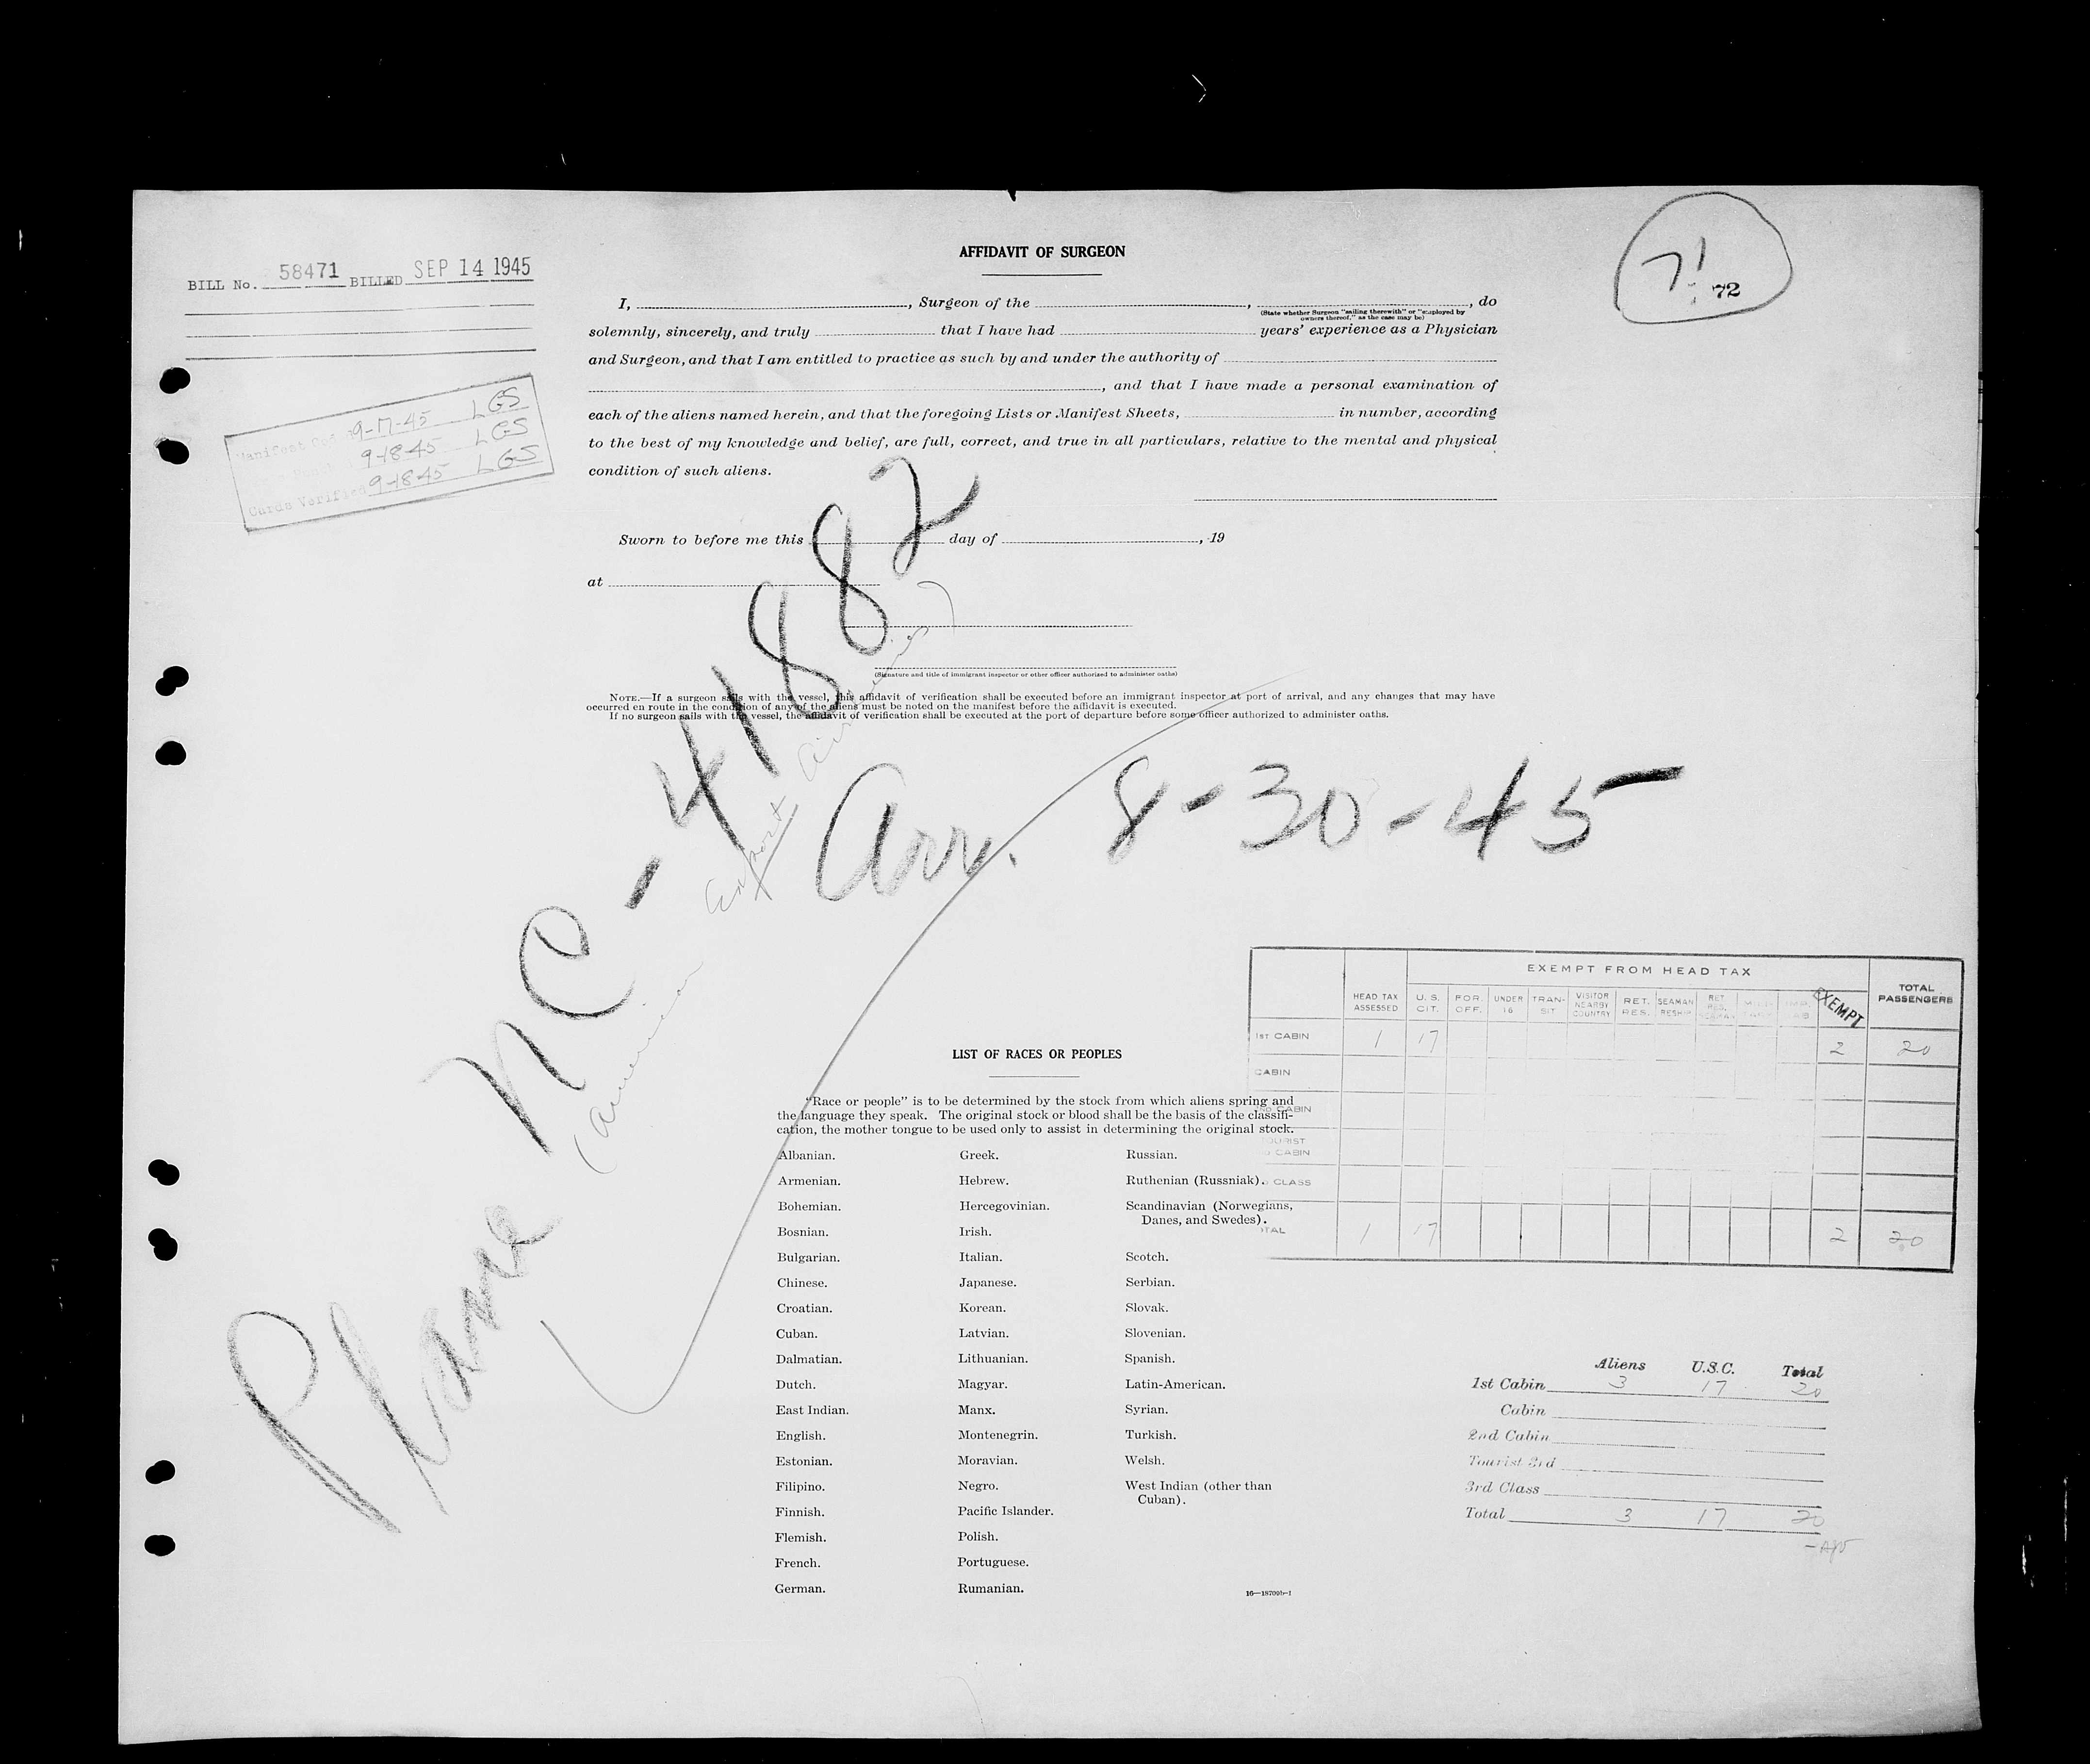 BILL No. 58471 BILLED SEP 14 1945
7'
72
9-17-45 LGS
9-18-45 LGS
Cards Verified 9-18-45 LGS
AFFIDAVIT OF SURGEON
I, , Surgeon of the , , do
(State whether Surgeon "sailing therewith" or "employed by
owners thereof," as the case may be)
solemnly, sincerely, and truly that I have had years' experience as a Physician
and Surgeon, and that I am entitled to practice as such by and under the authority of
, and that I have made a personal examination of
each of the aliens named herein, and that the foregoing Lists or Manifest Sheets, in number, according
to the best of my knowledge and belief, are full, correct, and true in all particulars, relative to the mental and physical
condition of such aliens.
Sworn to before me this day of , 19
at
(Signature and title of immigrant inspector or other officer authorized to administer oaths)
NOTE.—If a surgeon sails with the vessel, this affidavit of verification shall be executed before an immigrant inspector at port of arrival, and any changes that may have
occurred en route in the condition of any of the aliens must be noted on the manifest before the affidavit is executed.
If no surgeon sails with the vessel, the affidavit of verification shall be executed at the port of departure before some officer authorized to administer oaths.
Plane NC-41882
(American Export Airlines)
Arr. 8-30-45
EXEMPT FROM HEAD TAX
HEAD TAX ASSESSED U. S. CIT. FOR. OFF. UNDER 16 TRAN- SIT VISITOR NEARBY COUNTRY RET. RES. SEAMAN RESHIP RET RES. EXEMPT TOTAL PASSENGERS
1st CABIN 1 17 2 20
CABIN
2ND CABIN
TOURIST
3D CABIN
3D CLASS
TOTAL 1 17 2 20
LIST OF RACES OR PEOPLES
"Race or people" is to be determined by the stock from which aliens spring and
the language they speak. The original stock or blood shall be the basis of the classifi-
cation, the mother tongue to be used only to assist in determining the original stock.
Albanian.
Armenian.
Bohemian.
Bosnian.
Bulgarian.
Chinese.
Croatian.
Cuban.
Dalmatian.
Dutch.
East Indian.
English.
Estonian.
Filipino.
Finnish.
Flemish.
French.
German.
Greek.
Hebrew.
Hercegovinian.
Irish.
Italian.
Japanese.
Korean.
Latvian.
Lithuanian.
Magyar.
Manx.
Montenegrin.
Moravian.
Negro.
Pacific Islander.
Polish.
Portuguese.
Rumanian.
Russian.
Ruthenian (Russniak).
Scandinavian (Norwegians,
Danes, and Swedes).
Scotch.
Serbian.
Slovak.
Slovenian.
Spanish.
Latin-American.
Syrian.
Turkish.
Welsh.
West Indian (other than
Cuban).
Aliens U.S.C. Total
1st Cabin 3 17 20
Cabin
2nd Cabin
Tourist 3rd
3rd Class
Total 3 17 20